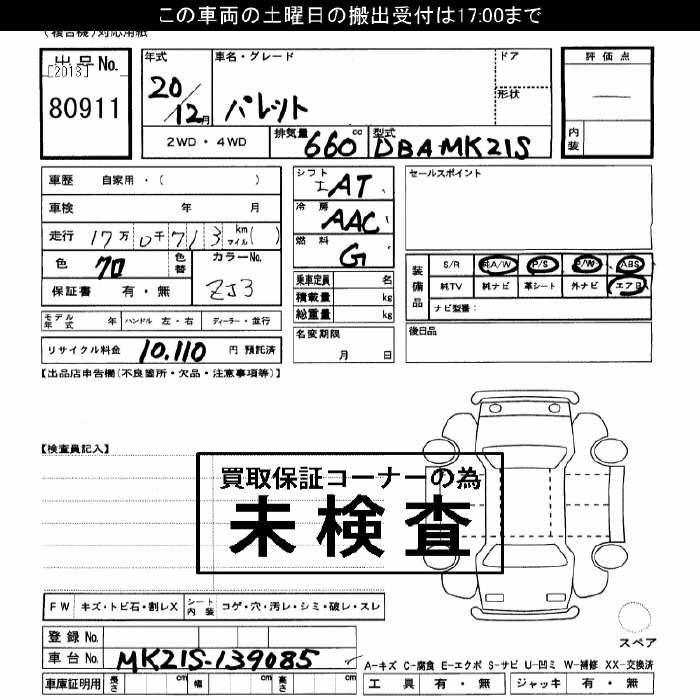 この車両の土曜日の搬出受付は17:00まで
(複合機)対応用紙
出品No.
[2013]
80911
年式
20/12月
車名・グレード
パレット
ドア
形状
評価点
内装
2WD・4WD
排気量 660 cc
型式 DBA-MK21S
車歴 自家用・( )
車検 年 月
走行 17万 0千 7 1 3 km マイル( )
色 クロ
色替
カラーNo. ZJ3
保証書 有・無
シフト エ AT
冷房 AAC
燃料 G
乗車定員 名
積載量 kg
総重量 kg
セールスポイント
装備品
S/R 純A/W P/S P/W ABS
純TV 純ナビ 革シート 外ナビ エアB
ナビ型番:
モデル年式 年 ハンドル 左・右 ディーラー・並行
名変期限 月 日
後日品
リサイクル料金 10,110 円 預託済
【出品店申告欄(不良箇所・欠品・注意事項等)】
【検査員記入】
買取保証コーナーの為
未検査
FW キズ・トビ石・割レX シート内装 コゲ・穴・汚レ・シミ・破レ・スレ
登録No.
車台No. MK21S-139085
スペア
A-キズ C-腐食 E-エクボ S-サビ U-凹ミ W-補修 XX-交換済
車庫証明用 長さ cm 幅 cm 高さ cm
工具 有・無 ジャッキ 有・無